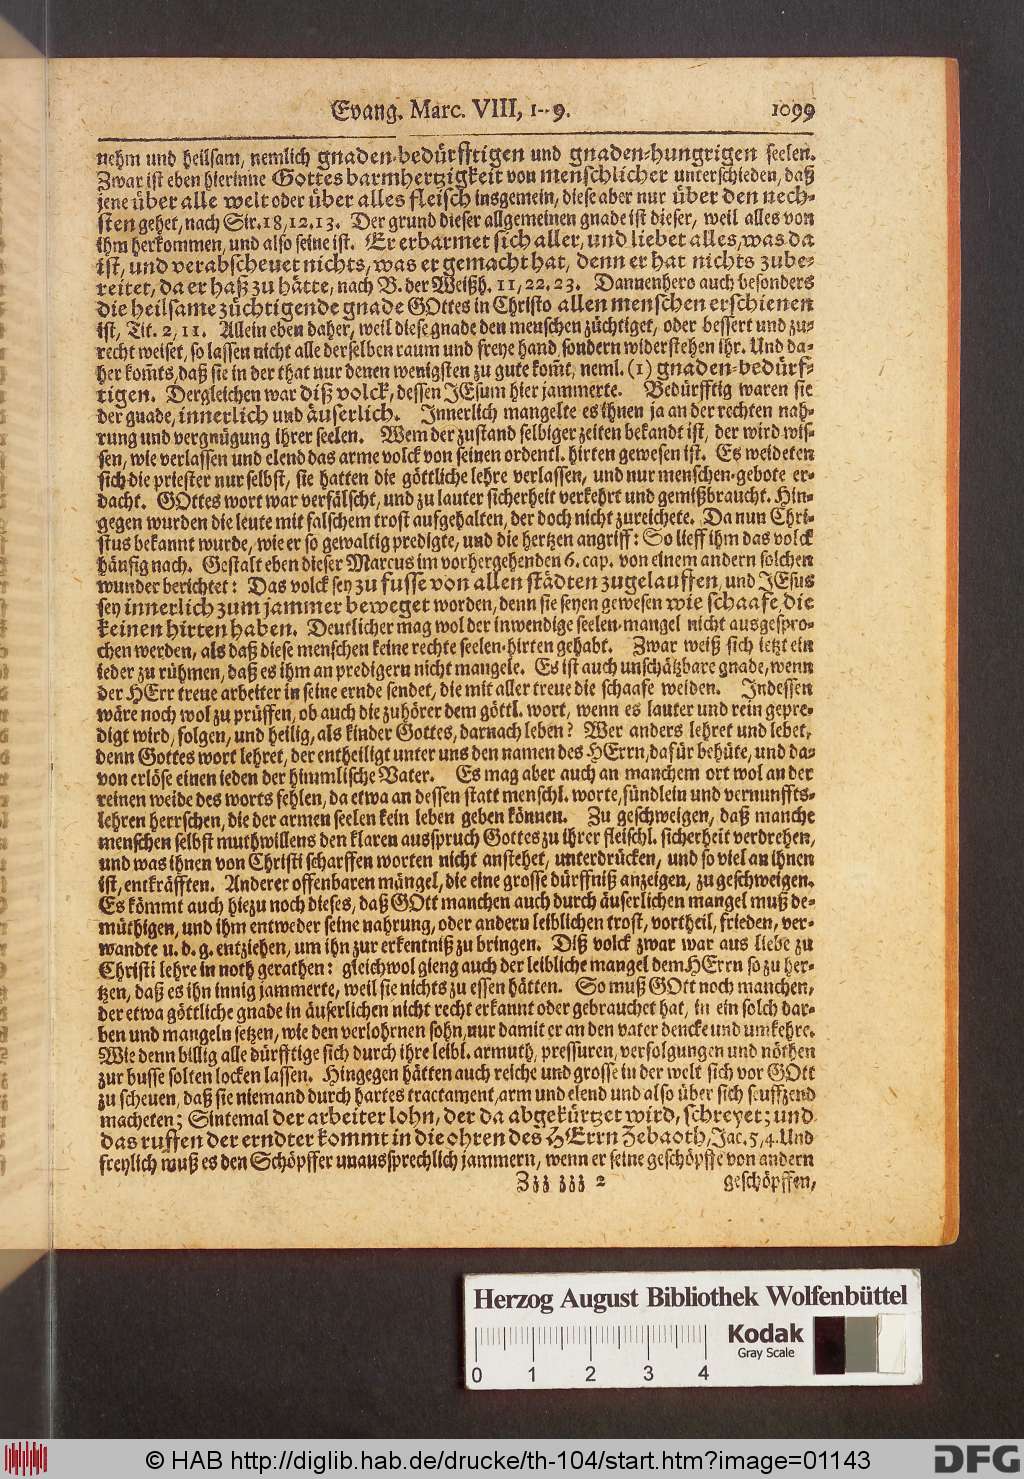 Evang. Marc. VIII, 1--9. 1099
nehm und heilsam, nemlich gnaden-bedürfftigen und gnaden-hungrigen seelen.
Zwar ist eben hierinne Gottes barmhertzigkeit von menschlicher unterschieden, daß
jene über alle welt oder über alles fleisch insgemein, diese aber nur über den nech-
sten gehet, nach Sir. 18, 12. 13. Der grund dieser allgemeinen gnade ist dieser, weil alles von
ihm herkommen, und also seine ist. Er erbarmet sich aller, und liebet alles, was da
ist, und verabscheuet nichts, was er gemacht hat, denn er hat nichts zube-
reitet, da er haß zu hätte, nach B. der Weißh. 11, 22. 23. Dannenhero auch besonders
die heilsame züchtigende gnade GOttes in Christo allen menschen erschienen
ist, Tit. 2, 11. Allein eben daher, weil diese gnade den menschen züchtiget, oder bessert und zu-
recht weiset, so lassen nicht alle derselben raum und freye hand, sondern widerstehen ihr. Und da-
her kom̃ts, daß sie in der that nur denen wenigsten zu gute kom̃t, neml. (1) gnaden-bedürf-
tigen. Dergleichen war diß volck, dessen JEsum hier jammerte. Bedürfftig waren sie
der gnade, innerlich und äuserlich. Innerlich mangelte es ihnen ja an der rechten nah-
rung und vergnügung ihrer seelen. Wem der zustand selbiger zeiten bekandt ist, der wird wis-
sen, wie verlassen und elend das arme volck von seinen ordentl. hirten gewesen ist. Es weideten
sich die priester nur selbst, sie hatten die göttliche lehre verlassen, und nur menschen-gebote er-
dacht. GOttes wort war verfälscht, und zu lauter sicherheit verkehrt und gemißbraucht. Hin-
gegen wurden die leute mit falschem trost aufgehalten, der doch nicht zureichete. Da nun Chri-
stus bekannt wurde, wie er so gewaltig predigte, und die hertzen angriff: So lieff ihm das volck
häufig nach. Gestalt eben dieser Marcus im vorhergehenden 6. cap. von einem andern solchen
wunder berichtet: Das volck sey zu fusse von allen städten zugelauffen, und JEsus
sey innerlich zum jammer beweget worden, denn sie seyen gewesen wie schaafe, die
keinen hirten haben. Deutlicher mag wol der inwendige seelen-mangel nicht ausgespro-
chen werden, als daß diese menschen keine rechte seelen-hirten gehabt. Zwar weiß sich ietzt ein
ieder zu rühmen, daß es ihm an predigern nicht mangele. Es ist auch unschätzbare gnade, wenn
der HErr treue arbeiter in seine ernde sendet, die mit aller treue die schaafe weiden. Indessen
wäre noch wol zu prüffen, ob auch die zuhörer dem göttl. wort, wenn es lauter und rein gepre-
digt wird, folgen, und heilig, als kinder Gottes, darnach leben? Wer anders lehret und lebet,
denn Gottes wort lehret, der entheiligt unter uns den namen des HErrn, dafür behüte, und da-
von erlöse einen ieden der himmlische Vater. Es mag aber auch an manchem ort wol an der
reinen weide des worts fehlen, da etwa an dessen statt menschl. worte, fündlein und vernunffts-
lehren herrschen, die der armen seelen kein leben geben können. Zu geschweigen, daß manche
menschen selbst muthwillens den klaren ausspruch Gottes zu ihrer fleischl. sicherheit verdrehen,
und was ihnen von Christi scharffen worten nicht anstehet, unterdrücken, und so viel an ihnen
ist, entkräfften. Anderer offenbaren mängel, die eine grosse dürffniß anzeigen, zu geschweigen.
Es kömmt auch hiezu noch dieses, daß GOtt manchen auch durch äuserlichen mangel muß de-
müthigen, und ihm entweder seine nahrung, oder andern leiblichen trost, vortheil, frieden, ver-
wandte u. d. g. entziehen, um ihn zur erkentniß zu bringen. Diß volck zwar war aus liebe zu
Christi lehre in noth gerathen: gleichwol gieng auch der leibliche mangel dem HErrn so zu her-
tzen, daß es ihn innig jammerte, weil sie nichts zu essen hätten. So muß GOtt noch manchen,
der etwa göttliche gnade in äuserlichen nicht recht erkannt oder gebrauchet hat, in ein solch dar-
ben und mangeln setzen, wie den verlohrnen sohn, nur damit er an den vater dencke und umkehre.
Wie denn billig alle dürfftige sich durch ihre leibl. armuth, pressuren, verfolgungen und nöthen
zur busse solten locken lassen. Hingegen hätten auch reiche und grosse in der welt sich vor GOtt
zu scheuen, daß sie niemand durch hartes tractament, arm und elend und also über sich seuffzend
macheten; Sintemal der arbeiter lohn, der da abgekürtzet wird, schreyet; und
das ruffen der erndter kommt in die ohren des HErrn Zebaoth, Jac. 5, 4. Und
freylich muß es den Schöpffer unaussprechlich jammern, wenn er seine geschöpffe von andern
Zzz zzz 2 geschöpffen,
Herzog August Bibliothek Wolfenbüttel
Kodak
Gray Scale
0 1 2 3 4
© HAB http://diglib.hab.de/drucke/th-104/start.htm?image=01143
DFG